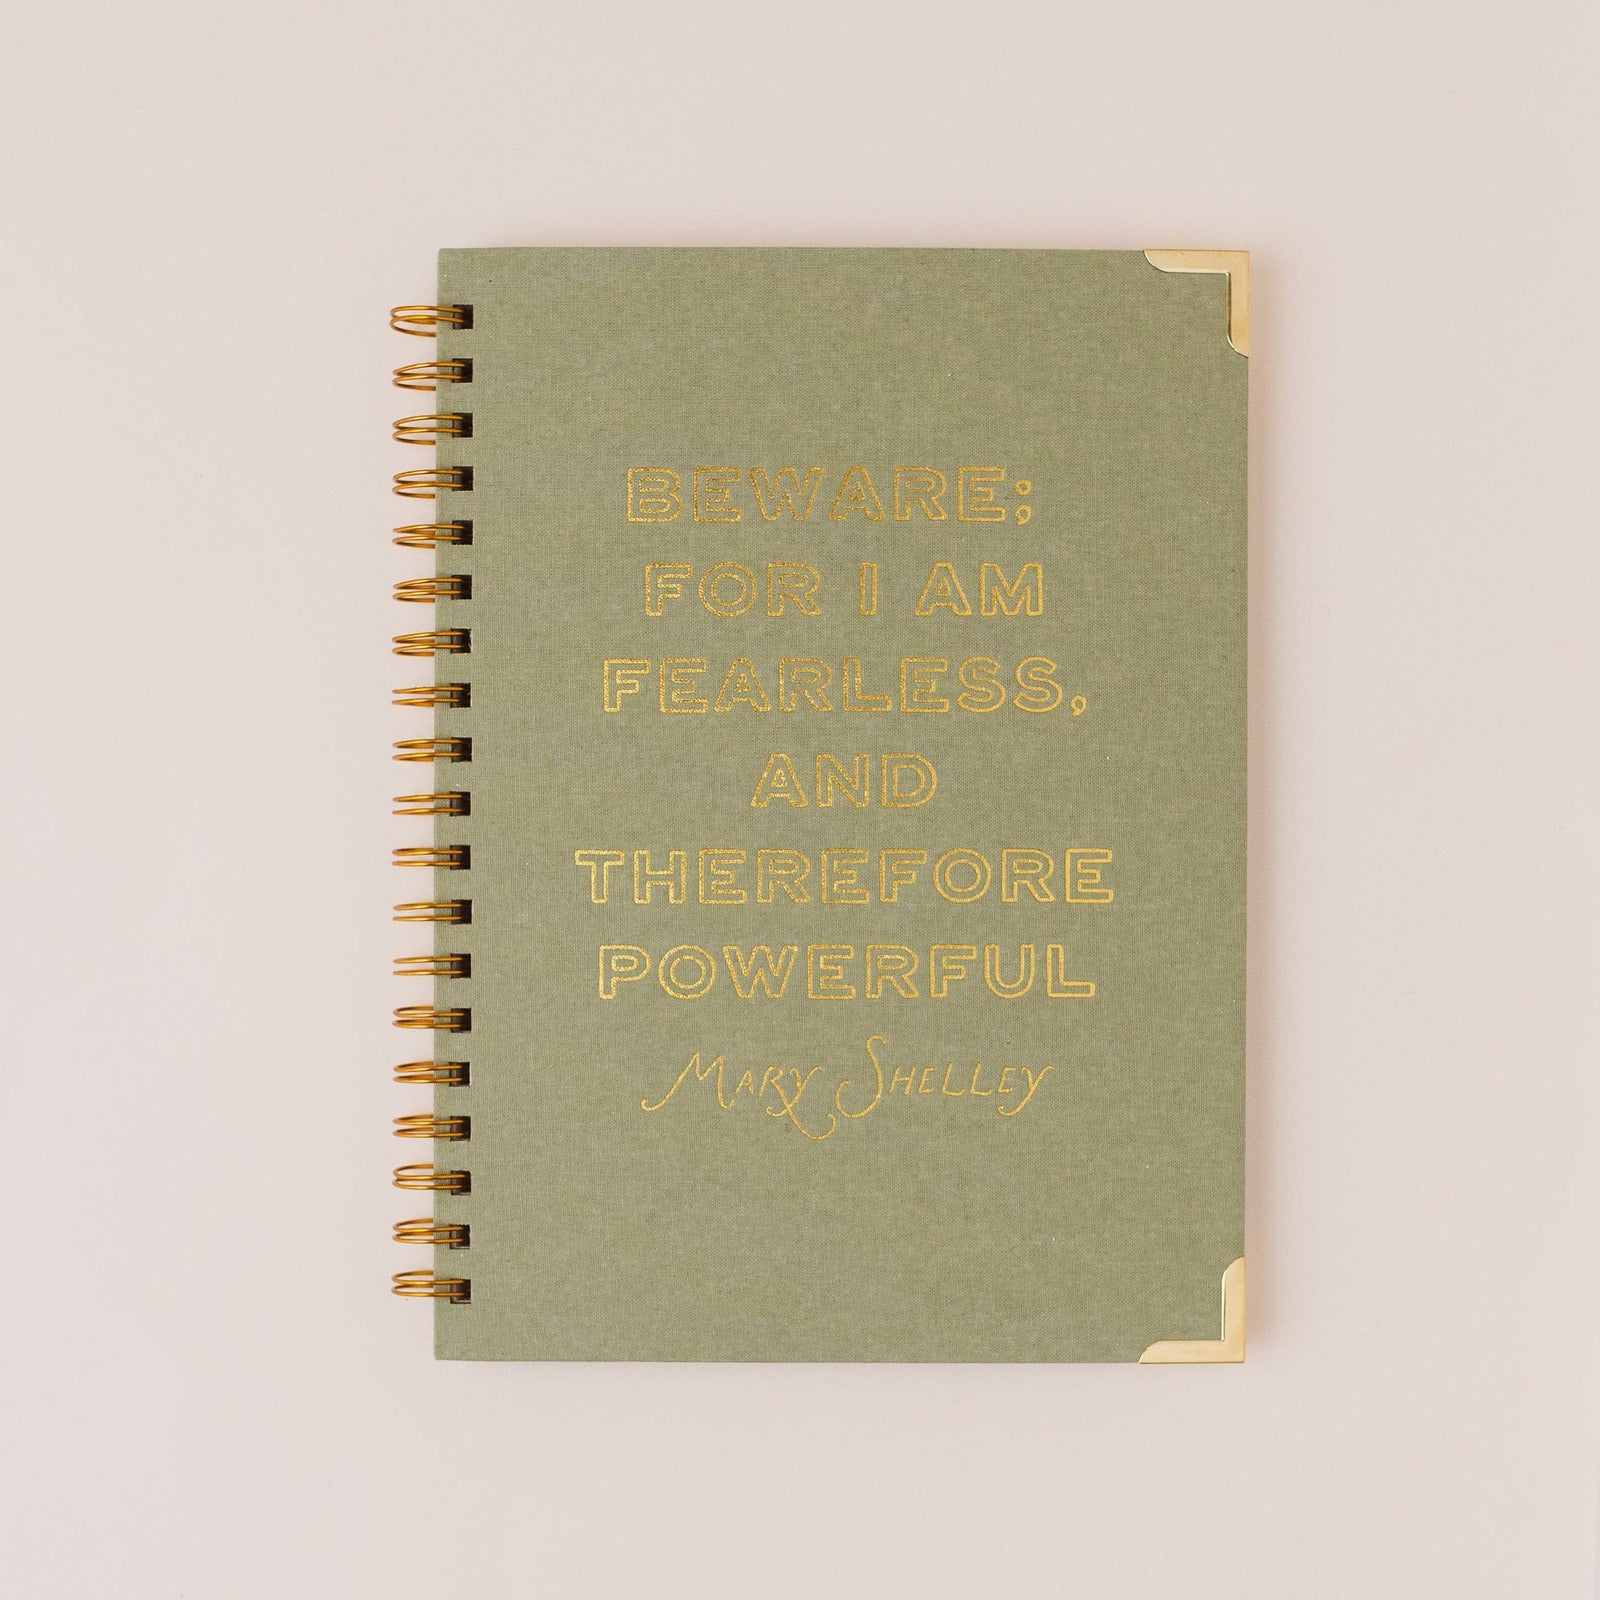 BEWARE;
FOR I AM
FEARLESS,
AND
THEREFORE
POWERFUL
MARY SHELLEY